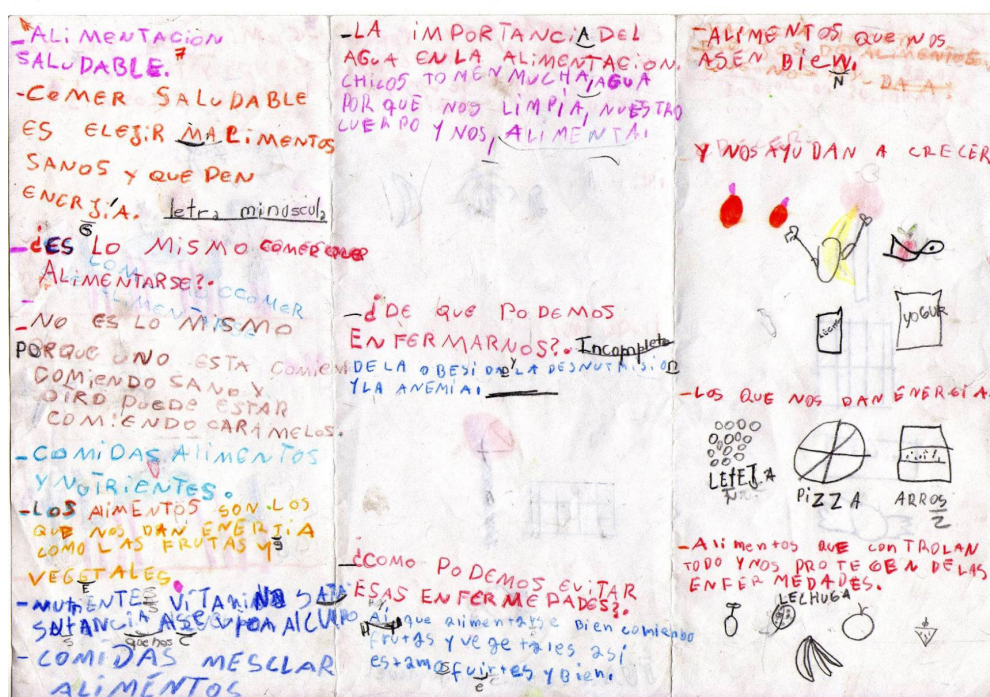 -ALIMENTACIÓN
SALUDABLE.
-COMER SALUDABLE
ES ELEJIR ALIMENTOS
SANOS Y QUE DEN
ENERJÍA. letra minuscula
G
-¿ES LO MISMO COMER QUE
ALIMENTARSE?.
-NO ES LO MISMO
PORQUE UNO ESTA COMIEN
COMIENDO SANO Y
OTRO PUEDE ESTAR
COMIENDO CARAMELOS.
-COMIDAS ALIMENTOS
Y NUTRIENTES.
-LOS AIMENTOS SON LOS
QUE NOS DAN ENERJIA
COMO LAS FRUTAS Y
VEGETALES
-COMIDAS MESCLAR
ALIMENTOS
-LA IMPORTANCIA DEL
AGUA EN LA ALIMENTACION.
CHICOS TOMEN MUCHA AGUA
PORQUE NOS LIMPIA, NUESTRO
CUERPO Y NOS, ALIMENTA.
-¿DE QUE PODEMOS
ENFERMARNOS?. Incompleto
DE LA OBESIDA LA DESNUTRISION
Y LA ANEMIA.
-¿COMO PODEMOS EVITAR
ESAS ENFERMEDADES?.
Ai que alimentarse Bien comiendo
frutas y vegetales asi
estamos fuirtes y Bien.
e
-ALIMENTOS QUE NOS
ASEN BIEN.
N
Y NOS AYUDAN A CRECER
LECHE
YOGUR
-LOS QUE NOS DAN ENERGIA.
LETEJA
PIZZA
ARROS
Z
-Alimentos QUE CONTROLAN
TODO Y NOS PROTEGEN DE LAS
ENFERMEDADES.
LECHUGA